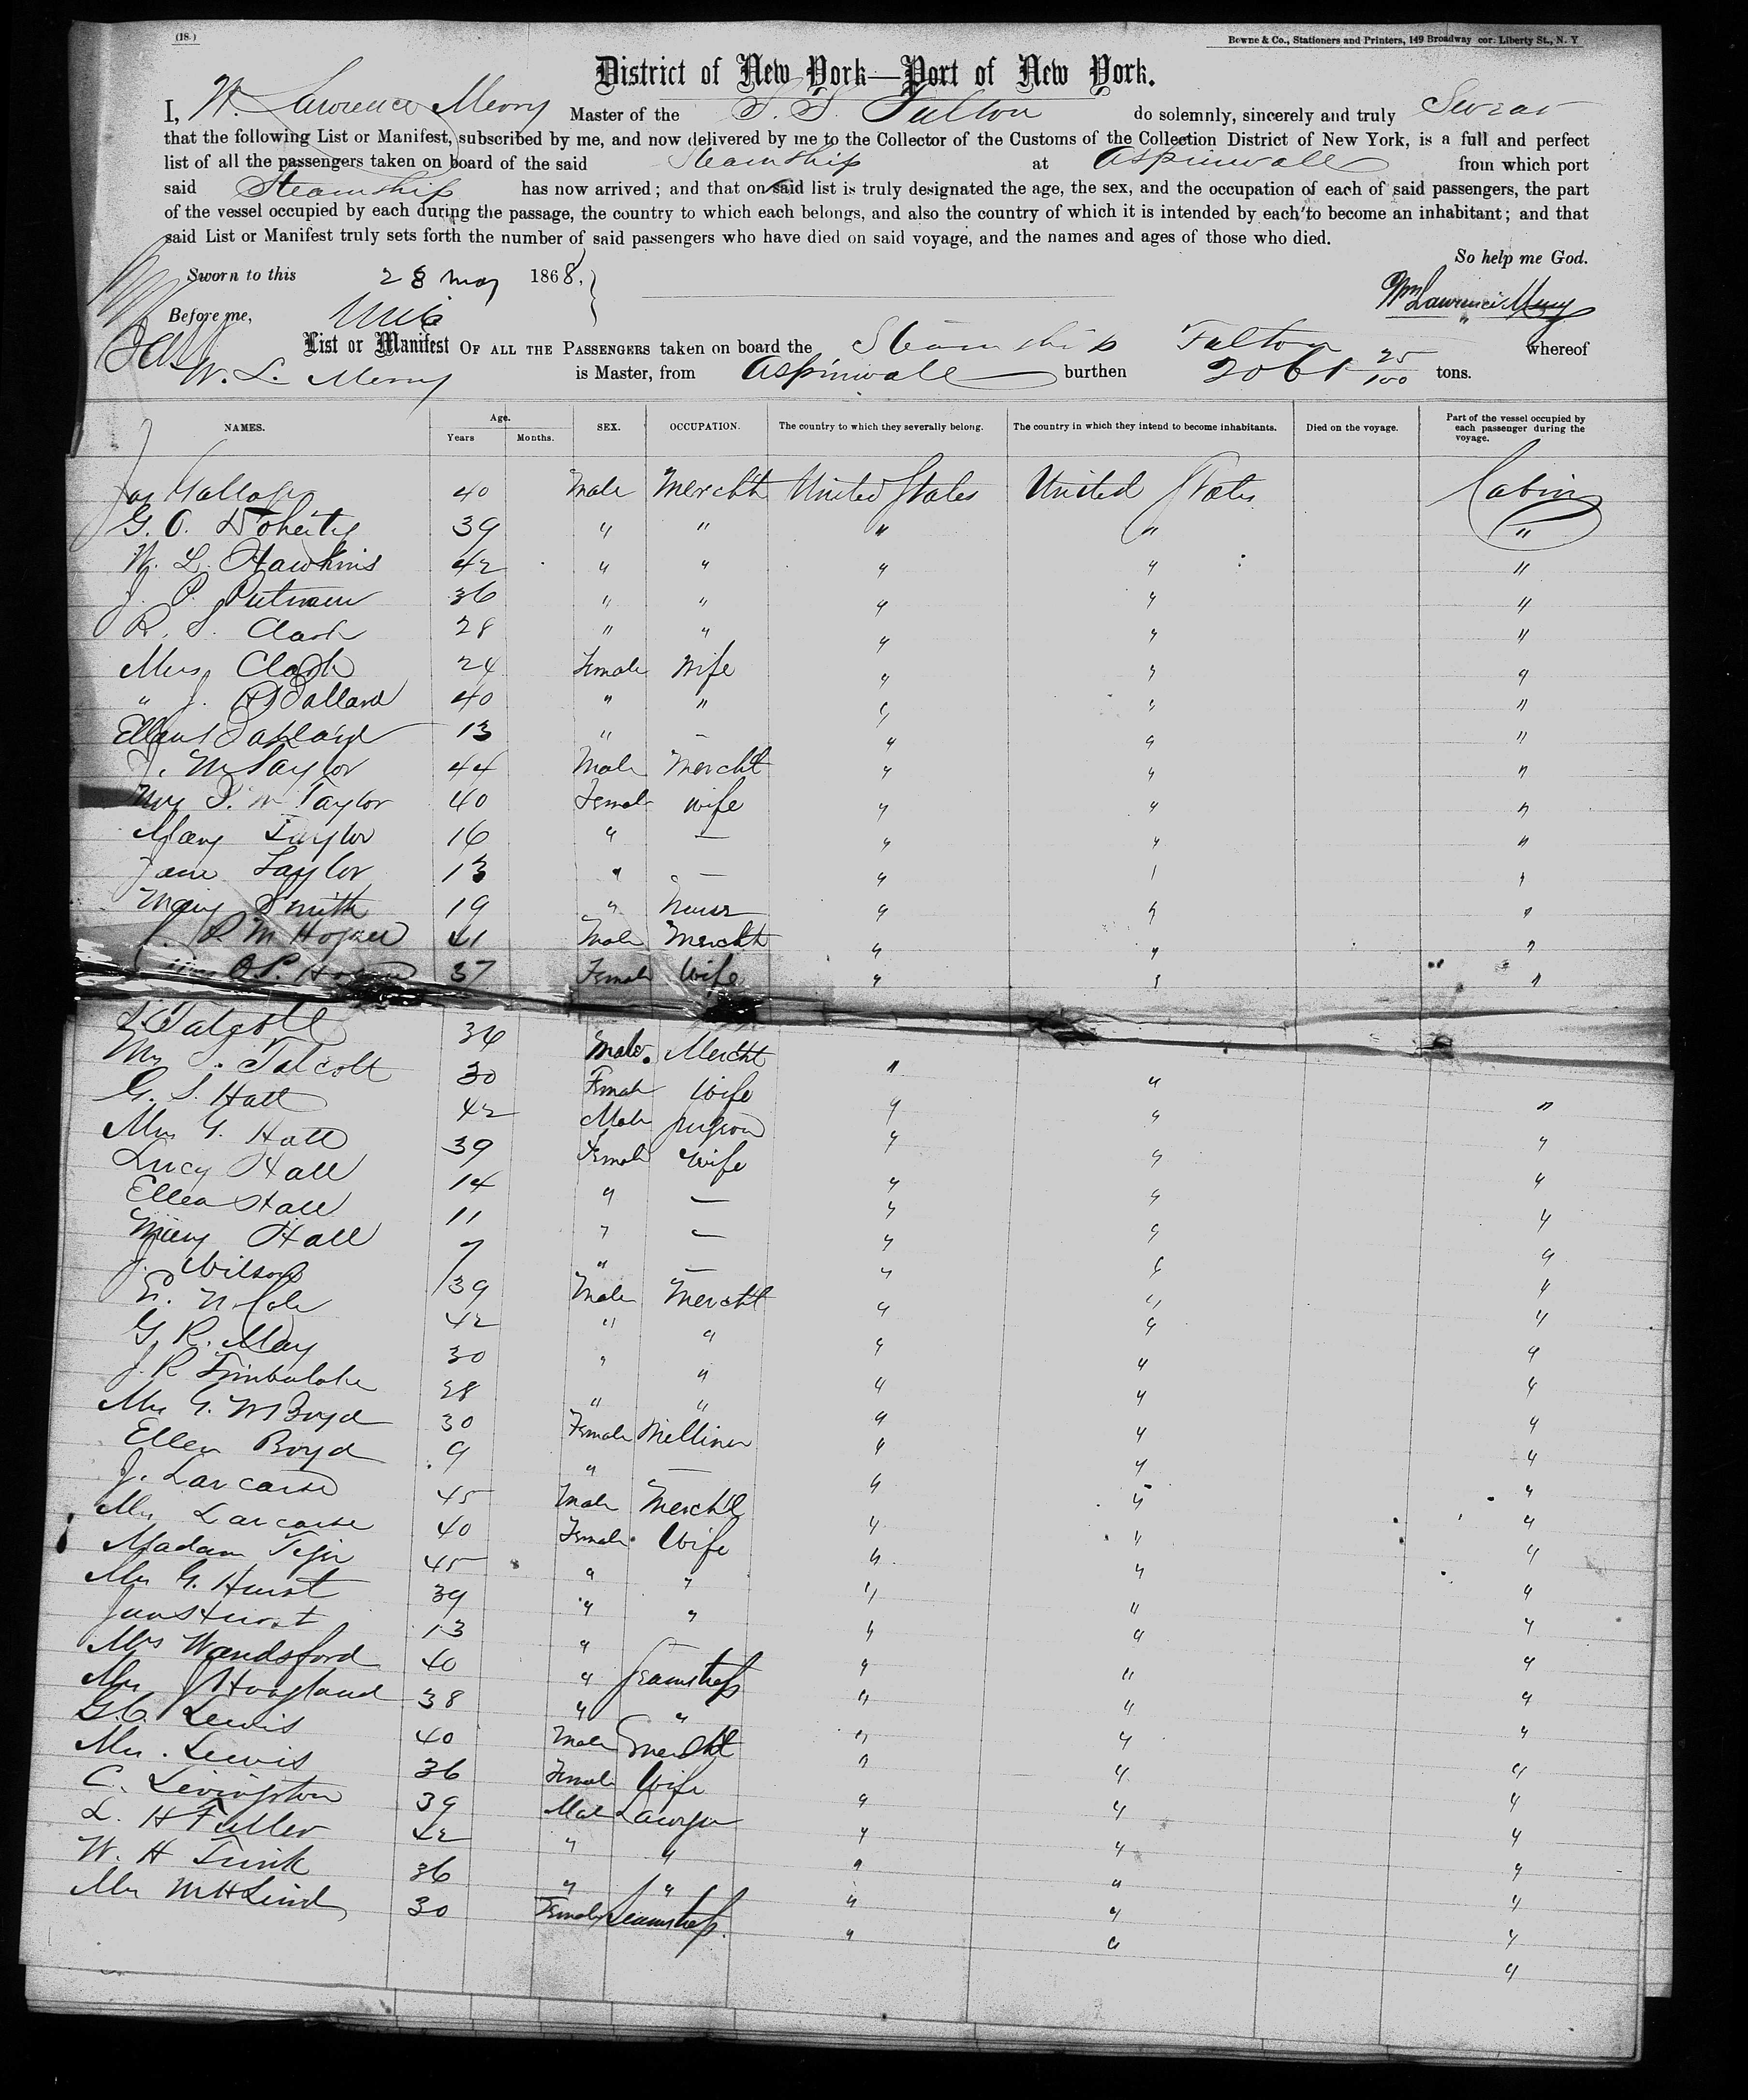 (18.)
Bowne & Co., Stationers and Printers, 149 Broadway cor. Liberty St., N. Y
District of New York—Port of New York.
I, W. Lawrence Merry Master of the S. S. Fulton do solemnly, sincerely and truly Swear
that the following List or Manifest, subscribed by me, and now delivered by me to the Collector of the Customs of the Collection District of New York, is a full and perfect
list of all the passengers taken on board of the said Steamship at Aspinwall from which port
said Steamship has now arrived; and that on said list is truly designated the age, the sex, and the occupation of each of said passengers, the part
of the vessel occupied by each during the passage, the country to which each belongs, and also the country of which it is intended by each to become an inhabitant; and that
said List or Manifest truly sets forth the number of said passengers who have died on said voyage, and the names and ages of those who died.
So help me God.
Sworn to this 28 May 1868,
Wm Lawrence Merry
Before me,
List or Manifest OF ALL THE PASSENGERS taken on board the Steamship Fulton whereof
W. L. Merry is Master, from Aspinwall burthen 2061 25/100 tons.
NAMES. Age. Years Months. SEX. OCCUPATION. The country to which they severally belong. The country in which they intend to become inhabitants. Died on the voyage. Part of the vessel occupied by each passenger during the voyage.
Jas 40 Male Mercht United States United States Cabin
G. O. Doherty 39 " " " " "
W. L. Hawkins 42 " " " " "
J. P. Putnam 36 " " " " "
R. S. Clark 28 " " " " "
Mrs Clark 24 Female Wife " " "
" J. Ballard 40 " " " " "
Ellen Ballard 13 " — " " "
J. M Taylor 44 Male Mercht " " "
Mrs J. M Taylor 40 Female Wife " " "
Mary Taylor 16 " — " " "
Jane Taylor 13 " — " " "
Mary Smith 19 " Nurse " " "
P. M Hogan 41 Male Mercht " " "
O. P. 37 Female Wife " " "
S. Talcott 36 Male Mercht " " "
Mrs S. Talcott 30 Female Wife " " "
G. S. Hall 42 Male Surgeon " " "
Mrs G. Hall 39 Female Wife " " "
Lucy Hall 14 " — " " "
Ellen Hall 11 " — " " "
Mary Hall 7 " — " " "
J. Wilson 39 Male Mercht " " "
E. N. Cole 42 " " " " "
G. R. May 30 " " " " "
J. R Timbulake 28 " " " " "
Mrs G. W Boyd 30 Female Milliner " " "
Ellen Boyd 9 " — " " "
J. Larcaise 45 Male Mercht " " "
Mrs Larcaise 40 Female Wife " " "
Madam 45 " " " " "
Mrs G. Hurst 39 " " " " "
Jane Hurst 13 " — " " "
Mrs Wandsford 40 " Seamstress " " "
Mrs J Hoagland 38 " " " " "
G. C. Lewis 40 Male Mercht " " "
Mrs. Lewis 36 Female Wife " " "
C. Livingston 39 Male Lawyer " " "
L. H Fuller 42 " " " " "
W. H 36 " " " " "
Mrs M H 30 Female Seamstress " " "